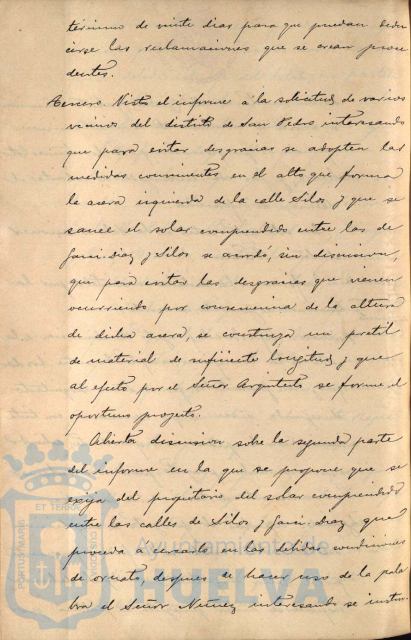 término de veinte dias para que puedan dedu
cirse las reclamaciones que se crean proce
dentes.
Tercero. Visto el informe á la solicitud de varios
vecinos del distrito de San Pedro interesando
que para evitar desgracias se adopten las
medidas convenientes en el alto que forma
la acera izquierda de la calle Silos y que se
sanee el solar comprendido entre las de
Garci-Diaz y Silos se acordó, sin discusion,
que para evitar las desgracias que vienen
ocurriendo por consecuencia de la altura
de dicha acera, se construya un pretil
de material de suficiente longitud y que
al efecto por el Señor Arquitecto se forme el
oportuno proyecto.
Abierta discusion sobre la segunda parte
del informe en la que se propone que se
exija del propietario del solar comprendido
entre las calles de Silos y Garci-Diaz que
proceda á cercarlo en las debidas condiciones
de ornato, despues de hacer uso de la pala
bra el Señor Nuñez interesando se instru-
PORTUS MARIS
ET TERRAE
CUSTODIA
Ayuntamiento de
HUELVA